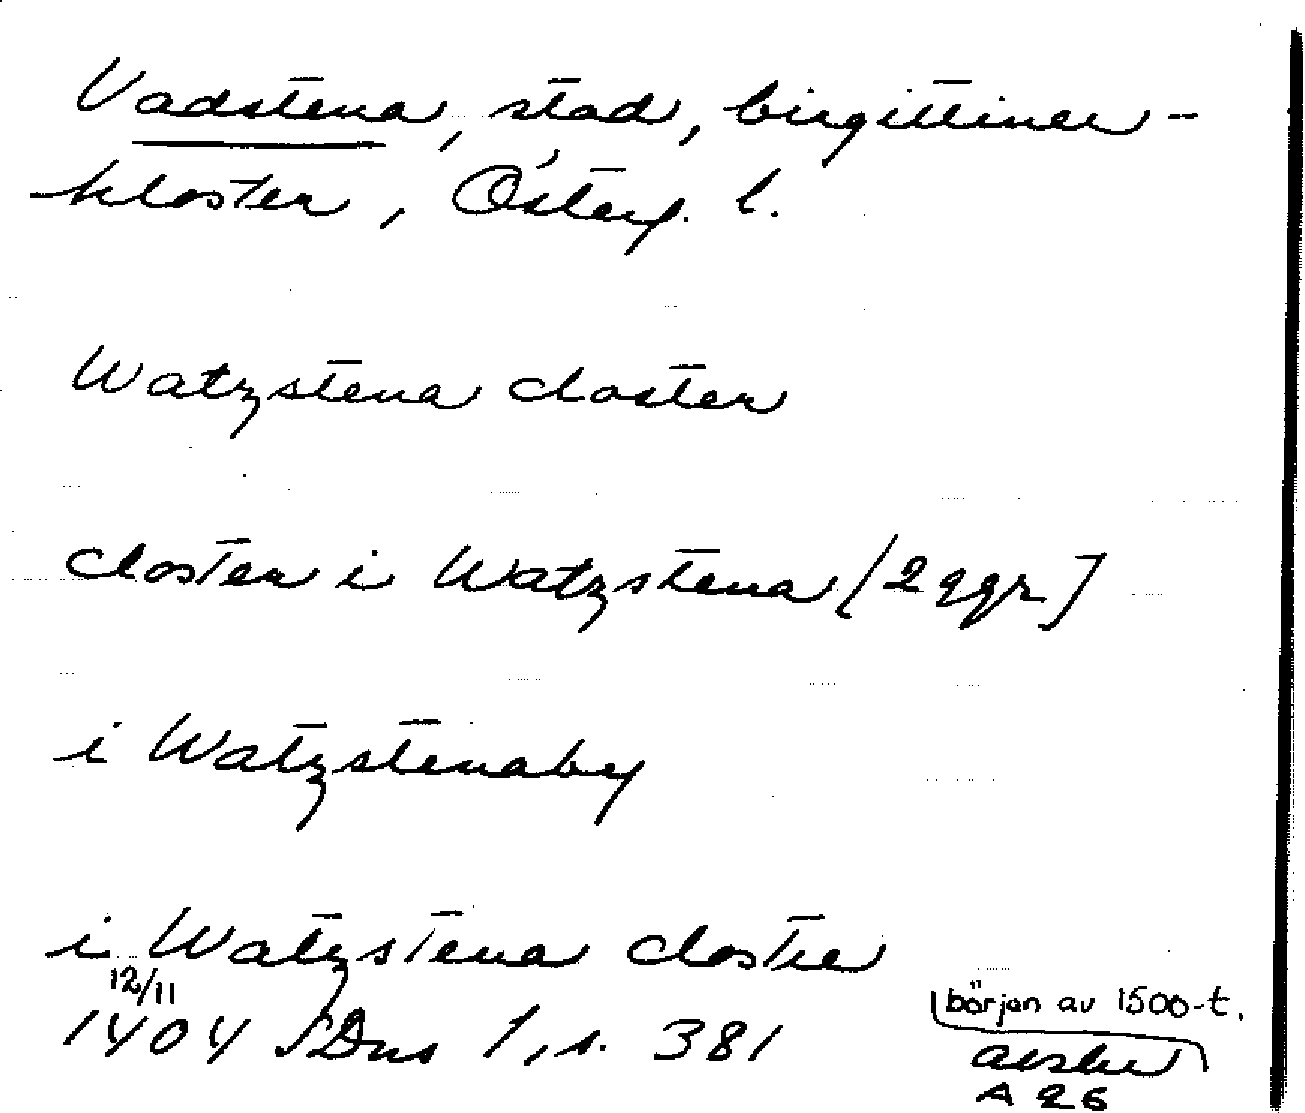 Vadstena, stad, birgittiner-
kloster, Österg. l.
Watzstena closter
closter i Watzstena [2 ggr]
i Watzstenaby
i Watzstena clostre
12/11
1404 SDns 1, s. 381
början av 1500-t.
avskr
A 26